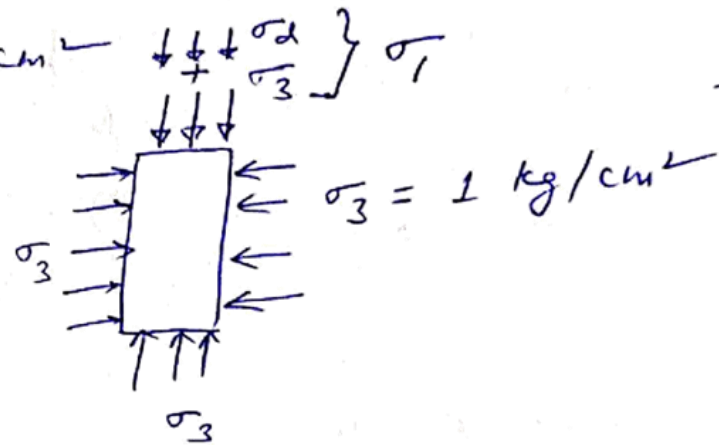 cm²
σd
+ σ3 } σ1
σ3 = 1 kg/cm²
σ3
σ3